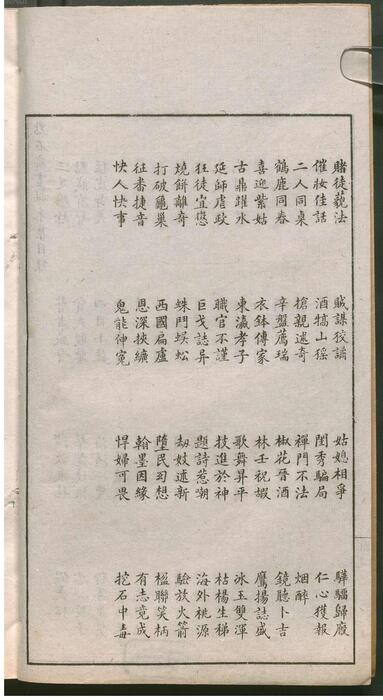 賭徒藐法 賊謀狡譎 姑媳相爭 驊騮歸廄
催妝佳話 酒犒山猺 閨秀騙局 仁心獲報
二人同桌 搶親述奇 禪門不法 烟醉
鶴鹿同春 辛盤薦瑞 椒花晉酒 鏡聽卜吉
喜迎紫姑 衣鉢傳家 林壬祝嘏 鷹揚誌盛
古鼎躍水 東瀛孝子 歌舞昇平 冰玉雙渾
延師虐政 職官不謹 技進於神 枯楊生梯
狂徒宜懲 巨戈誌异 題詩惹嘲 海外桃源
燒餅離奇 蛛鬥蜈蚣 劫妓述新 驗放火箭
打破龜巢 西國扁盧 墮民想 楹聯笑柄
征番捷音 恩深挾纊 翰墨因緣 有志竟成
快人快事 鬼能伸冤 悍婦可畏 挖石中毒